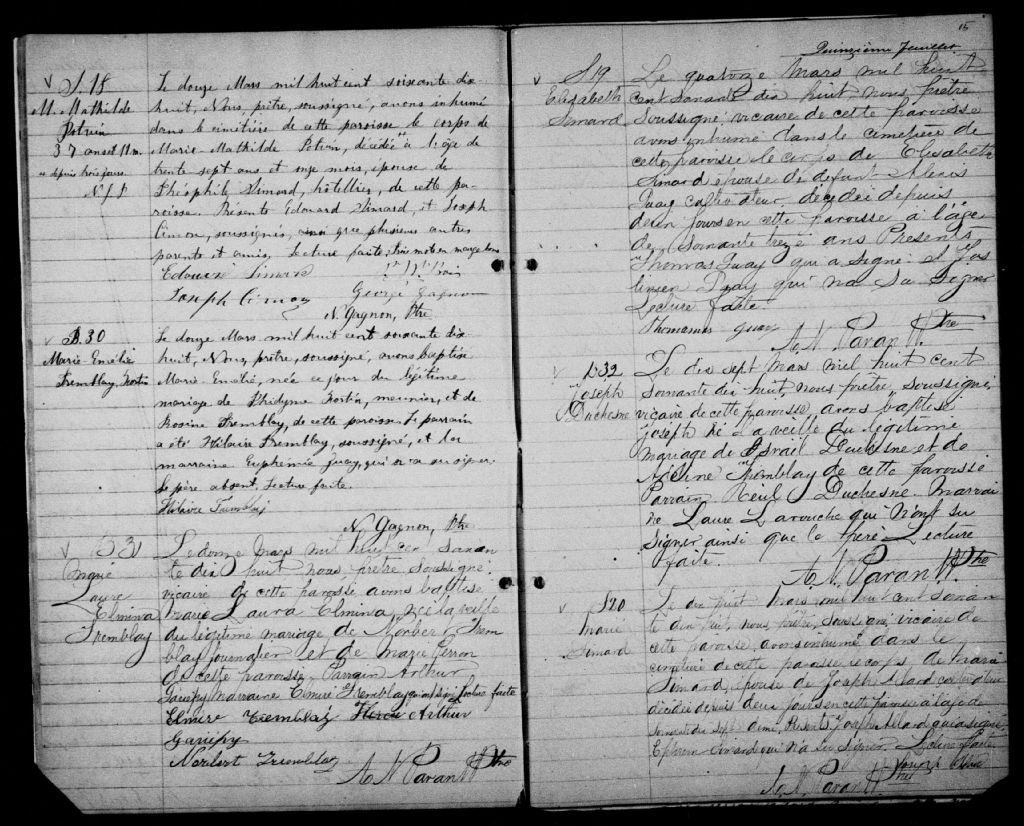 S. 18
M. Mathilde
Potvin
37 ans et 11 m.
" depuis trois jours.
Le douze Mars mil huit cent soixante dix-
huit, Nous, prêtre, soussigné, avons inhumé
dans le cimetière de cette paroisse le corps de
Marie-Mathilde Potvin, décédée " à l'âge de
trente sept ans et onze mois, épouse de
Théophile Simard, hôtellier, de cette pa-
roisse. Présents Edouard Simard, et Joseph
Cimon, soussignés, ainsi que plusieurs autres
parents et amis. Lecture faite. Trois mots en marge bons
Edouard Simard
Joseph Cimon
George Gagnon
N. Gagnon, Ptre
B. 30
Marie-Emélie
Tremblay Fortin
Le douze Mars mil huit cent soixante dix-
huit, Nous, prêtre, soussigné, avons baptisé
Marie-Emélie, née ce jour du légitime
mariage de Phydime Fortin, meunier, et de
Rosine Tremblay, de cette paroisse. Le parrain
a été Hilaire Tremblay, soussigné, et la
marraine Euphémie Guay, qui n'a su signer.
Le père absent. Lecture faite.
Hilaire Tremblay
N. Gagnon, Ptre
B 31
Marie
Laure
Elmina
Tremblay
Le douze Mars mil huit cen soixan
te dix huit nous, prêtre soussigné
vicaire de cette paroisse avons baptisé
Marie Laura Elmina, née la veille
du légitime mariage de Norbert Trem
blay journalier et de Marie Perron
de cette paroisse Parrain Arthur
Gariepy Marraine Elmire Tremblay qui ont signé Lecture faite
Elmire Tremblay Arthur
Gariepy
Norbert Tremblay
A N Paran Ptre
15
Quinzième feuillet
S 19
Elisabeth
Simard
Le quatorze Mars mil huit
cent soixante dix huit nous prêtre
soussigné vicaire de cette paroisse
avons inhumé dans le cimetière de
cette paroisse le corps de Elisabeth
Simard épouse de défunt Alexis
Guay cultivateur, décédée depuis
deux jours en cette paroisse à l'âge
de soixante treize ans Présents
Thomas Guay qui a signé et
Guay qui na su signer
Lecture faite.
Thomamas Guay
A N Paran Ptre
B 32
Joseph
Duchesne
Le dix sept Mars mil huit cent
soixante dix huit, nous prêtre soussigné,
vicaire de cette paroisse, avons baptisé
Joseph né la veille du légitime
mariage de Israël Duchesne et de
Adeline Tremblay de cette paroisse
Parrain Reul Duchesne. Marrai
ne Laure Larouche qui n'ont su
signer ainsi que le père Lecture
faite.
A N. Paran Ptre
S 20
Marie
Simard
Le dix huit Mars mil huit cent soixan
te dix huit, nous prêtre soussigné, vicaire de
cette paroisse, avons inhumé dans le
cimetière de cette paroisse le corps de Marie
Simard, épouse de Joseph Allard cultivateur
décédée depuis deux jours en cette paroisse à l'age de
soixante dix sept Présents Joseph Allard qui a signé
Ephrem Simard qui n'a su signer. Lecture faite
Joseph
A. N. Paran Ptre